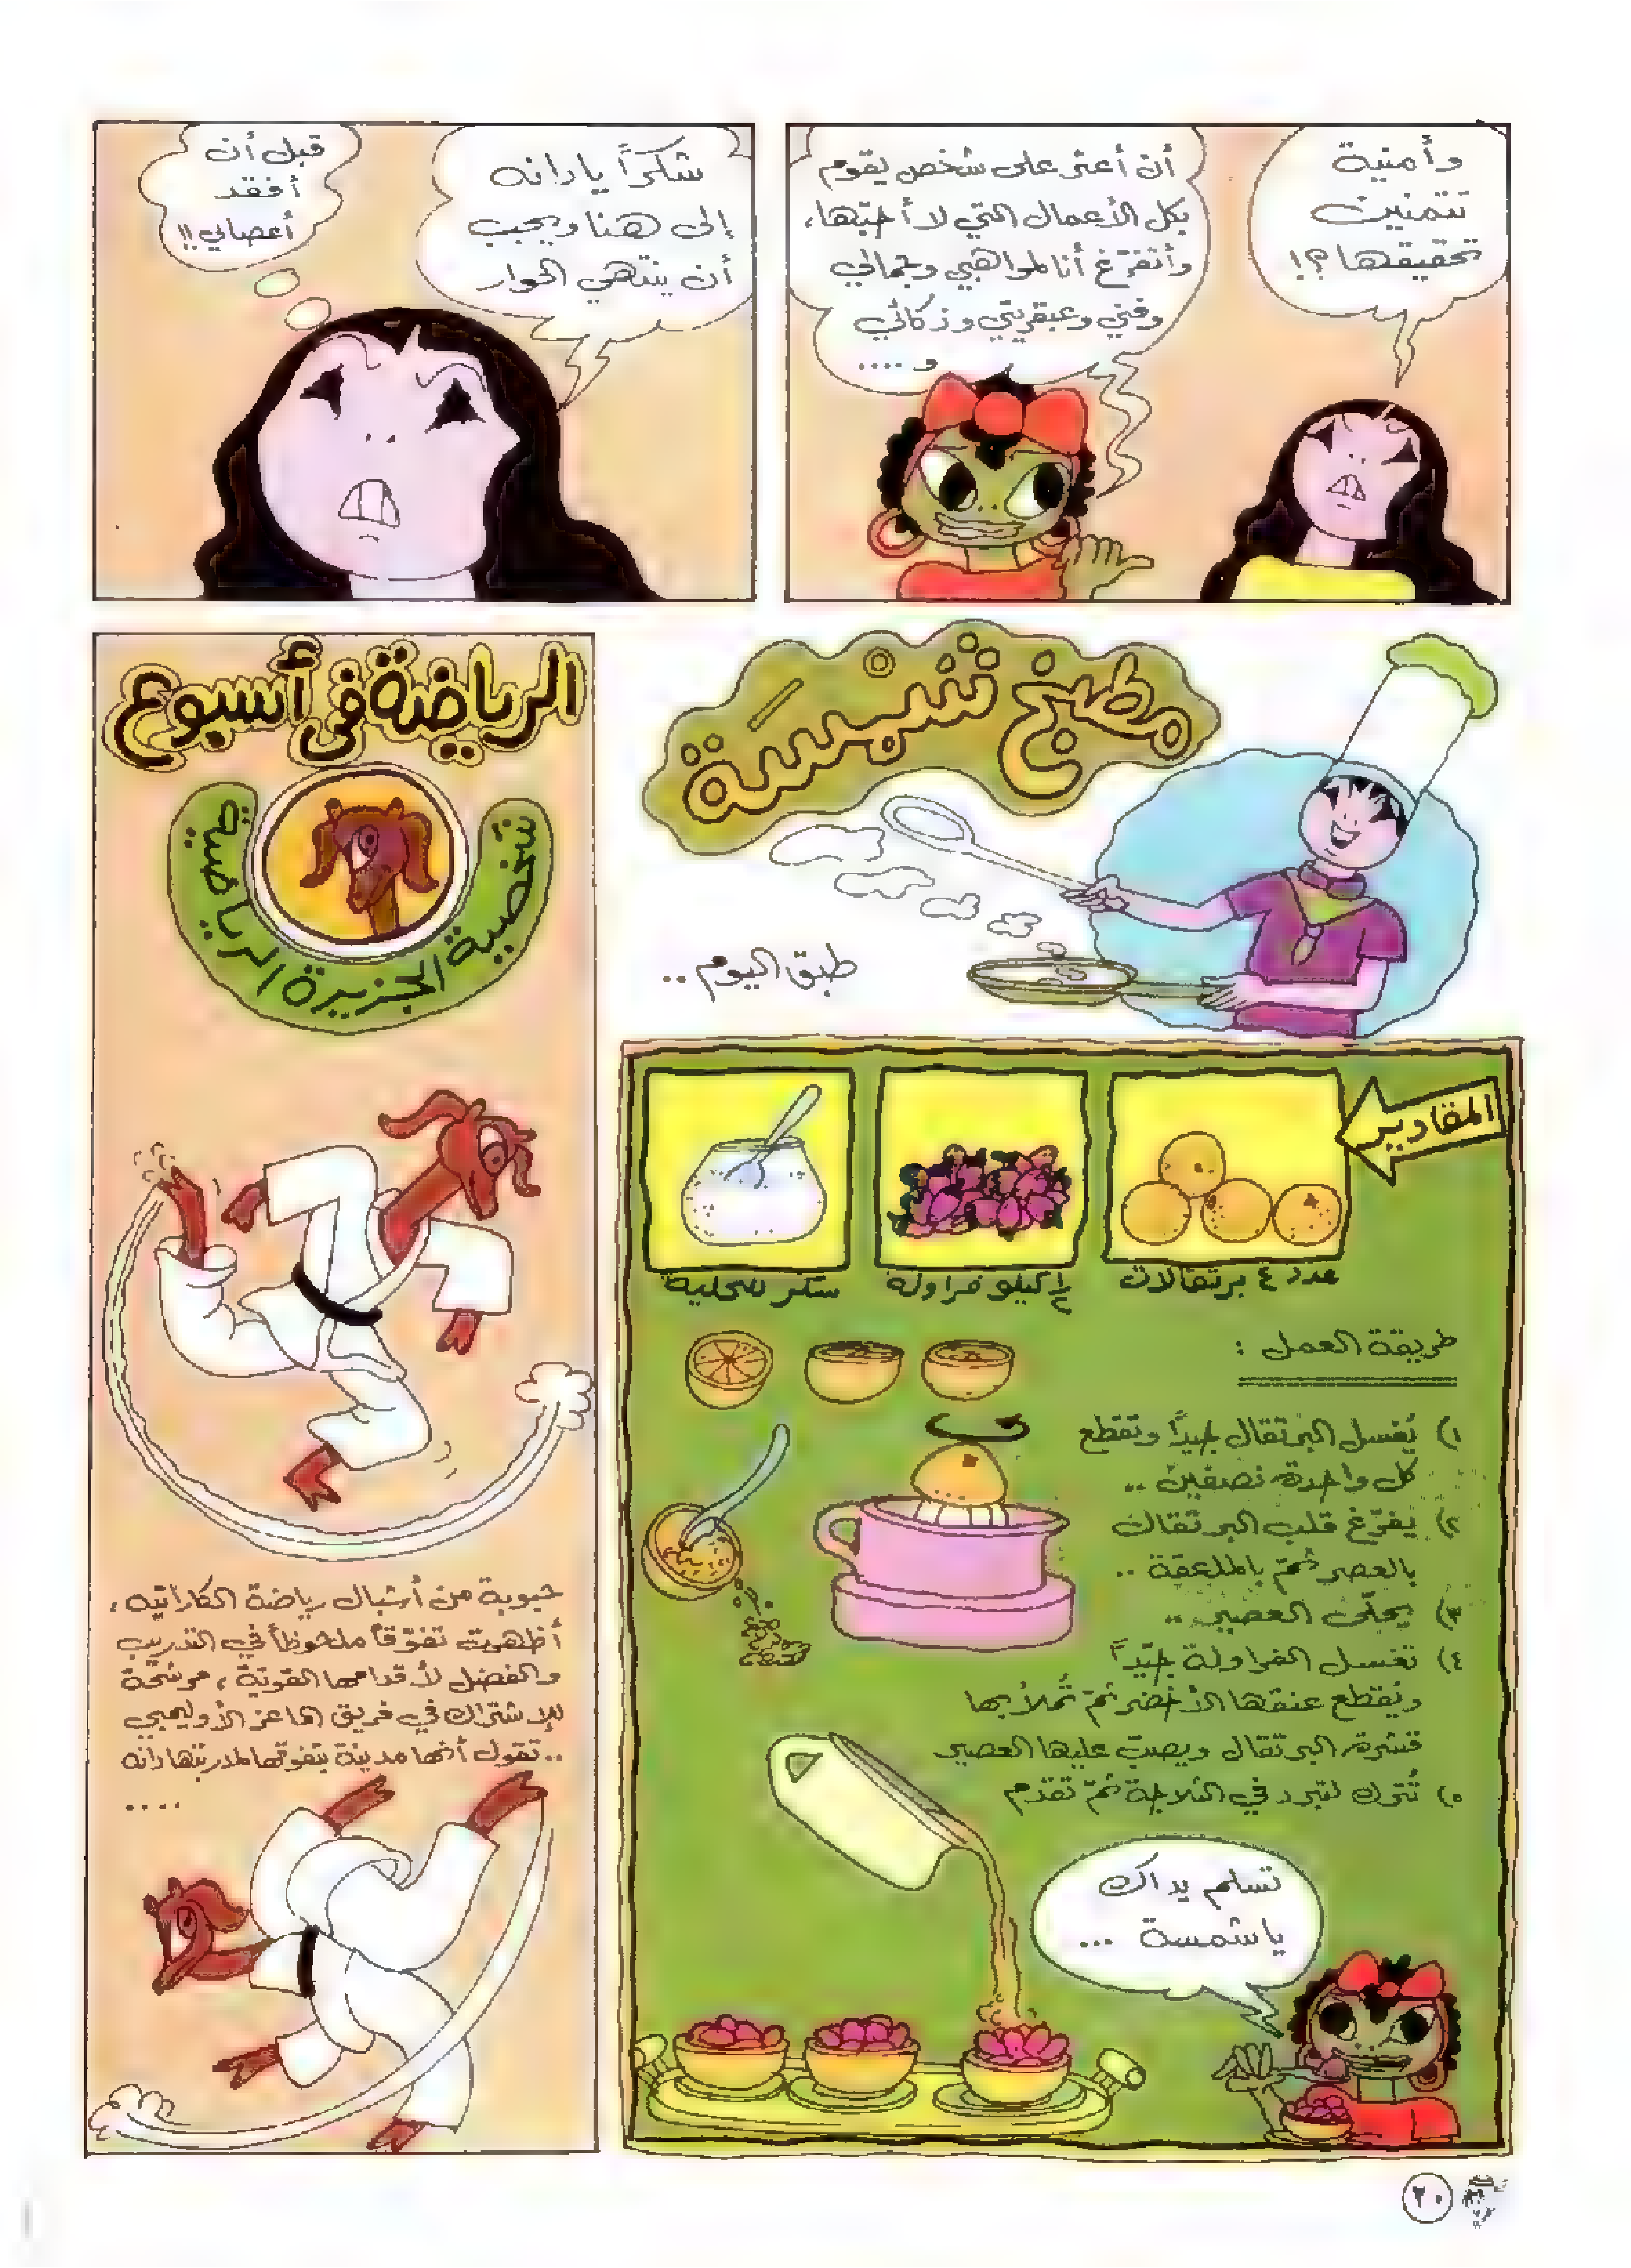 وأمنية
تتمنين
تحقيقها؟!
أن أعثر على شخص يقوم
بكل الأعمال التي لا أحبّها،
وأتفرّغ أنا لمواهبي وجمالي
وفني وعبقريتي وذكائي
و ....
شكراً يا دانه
إلى هنا ويجب
أن ينتهي الحوار
قبل أن
أفقد
أعصابي!!
مطبخ شمْسَة
طبق اليوم ..
المقادير
عدد ٤ برتقالات
½ كيلو فراولة
سكر للتحلية
طريقة العمل :
١) يُغسل البرتقال جيداً وتقطع
كل واحدة نصفين ..
٢) يفرّغ قلب البرتقال
بالعصر ثمّ بالملعقة ..
٣) يحلّى العصير ..
٤) تغسل الفراولة جيّداً
ويُقطع عنقها الأخضر ثمّ تُملأ بها
قشرة البرتقال ويصبّ عليها العصير
٥) تُترك لتبرد في الثلاجة ثمّ تقدم
تسلم يداك
يا شمسة ...
الرياضة فى أسبوع
شخصية الجزيرة الرياضية
حبوبة من أشبال رياضة الكاراتيه،
أظهرت تفوّقاً ملحوظاً في التدريب
والفضل لأقدامها القويّة، مرشحّة
للاشتراك في فريق الماعز الأوليمبي
.. تقول أنها مدينة بتفوقها لمدربتها دانه
....
٢٠